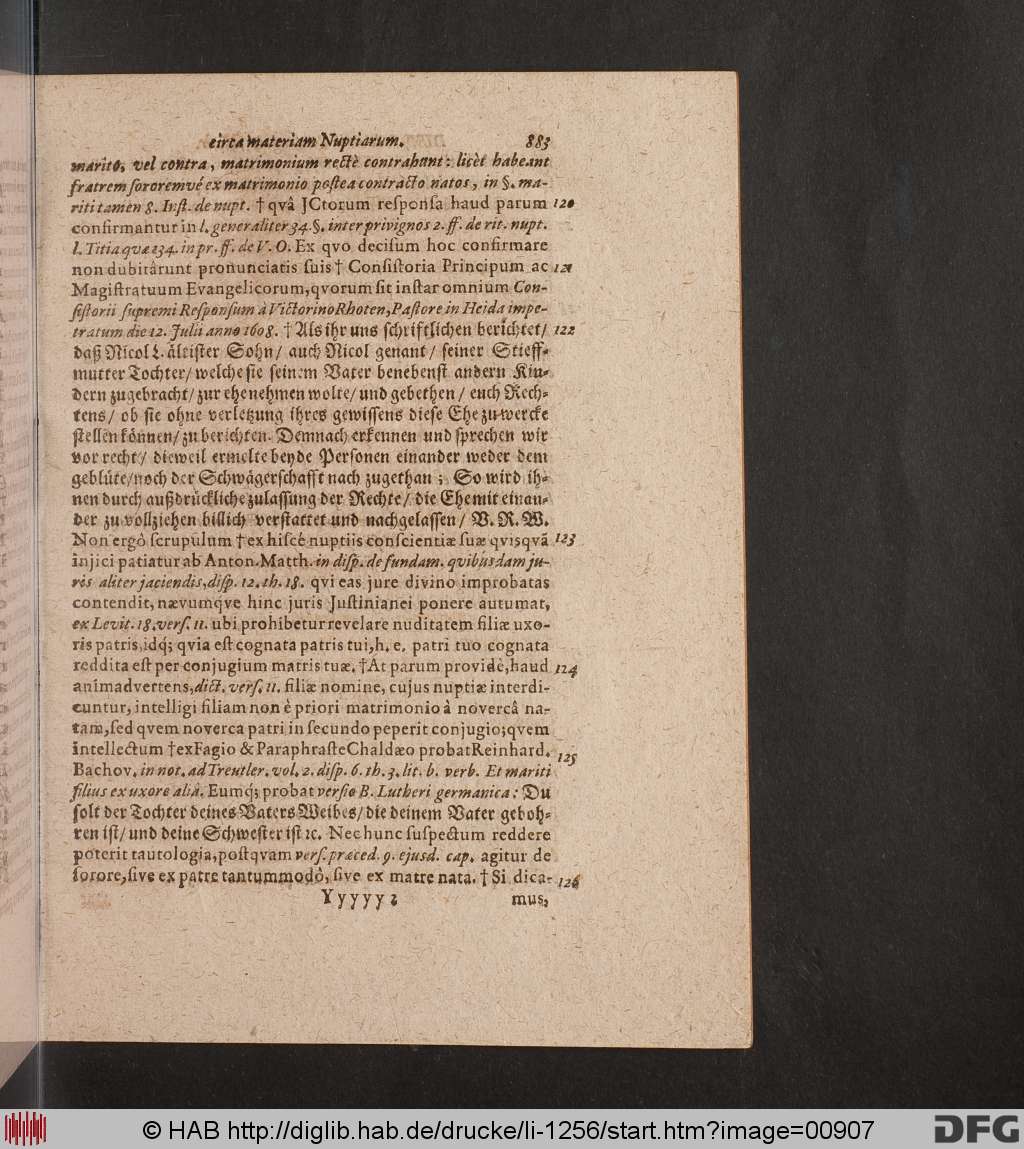 circa materiam Nuptiarum. 883
marito, vel contra, matrimonium rectè contrahunt: licèt habeant
fratrem sororemvé ex matrimonio postea contracto natos, in §. ma-
riti tamen 8. Inst. de nupt. † qvâ JCtorum responsa haud parum 120
confirmantur in l. generaliter 34. §. inter privignos 2. ff. de rit. nupt.
l. Titia quæ 134. in pr. ff. de V. O. Ex qvo decisum hoc confirmare
non dubitârunt pronunciatis suis † Consistoria Principum ac 121
Magistratuum Evangelicorum, qvorum sit instar omnium Con-
sistorii supremi Responsum à Victorino Rhoten, Pastore in Heida impe-
tratum die 12. Julii anno 1608. † Als ihr uns schriftlichen berichtet/ 122
daß Nicol L. ältister Sohn/ auch Nicol genant/ seiner Stieff-
mutter Tochter/ welche sie seinem Vater benebenst andern Kin-
dern zugebracht/ zur ehe nehmen wolte/ und gebethen/ euch Rech-
tens/ ob sie ohne verletzung ihres gewissens diese Ehe zu wercke
stellen können/ zu berichten. Demnach erkennen und sprechen wir
vor recht/ dieweil ermelte beyde Personen einander weder dem
geblüte/ noch der Schwägerschafft nach zugethan; So wird ih-
nen durch außdrückliche zulassung der Rechte/ die Ehe mit einan-
der zu vollziehen billich verstattet und nachgelassen/ V. R. W.
Non ergò scrupulum † ex hiscé nuptiis conscientiæ suæ qvisqvã 123
injici patiatur ab Anton. Matth. in disp. de fundam. qvibusdam ju-
ris aliter jaciendis, disp. 12. th. 18. qvi eas jure divino improbatas
contendit, nævumqve hinc juris Justinianei ponere autumat,
ex Levit. 18. vers. 11. ubi prohibetur revelare nuditatem filiæ uxo-
ris patris, idq; qvia est cognata patris tui, h. e. patri tuo cognata
reddita est per conjugium matris tuæ. † At parum providè, haud 124
animadvertens, dict. vers. 11. filiæ nomine, cujus nuptiæ interdi-
cuntur, intelligi filiam non è priori matrimonio à novercâ na-
tam, sed qvem noverca patri in secundo peperit conjugio; qvem
intellectum † ex Fagio & Paraphraste Chaldæo probat Reinhard. 125
Bachov. in not. ad Treutler. vol. 2. disp. 6. th. 3. lit. b. verb. Et mariti
filius ex uxore aliâ. Eumq; probat versio B. Lutheri germanica: Du
solt der Tochter deines Vaters Weibes/ die deinem Vater geboh-
ren ist/ und deine Schwester ist ꝛc. Nec hunc suspectum reddere
poterit tautologia, postqvam vers. præced. 9. ejusd. cap. agitur de
sorore, sive ex patre tantummodò, sive ex matre nata. † Si dica- 126
Yyyyy 2 mus,
© HAB http://diglib.hab.de/drucke/li-1256/start.htm?image=00907
DFG